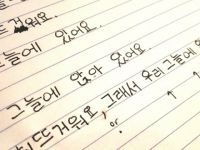 뜨거워요.
그늘에 있어요.
그늘에 앉아 있어요.
뜨거워요, 그래서 우리 그늘에
or